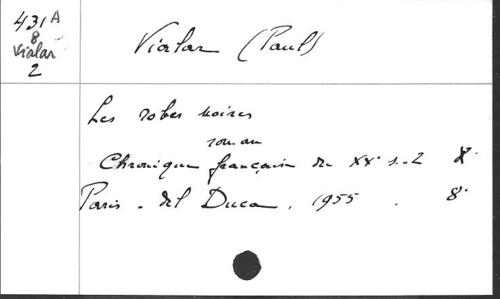 431 A
8
Vialar
2
Vialar (Paul)
Les robes noires
roman
Chronique française du XXe s. - 2 X.
Paris - del Duca. 1955. 8°